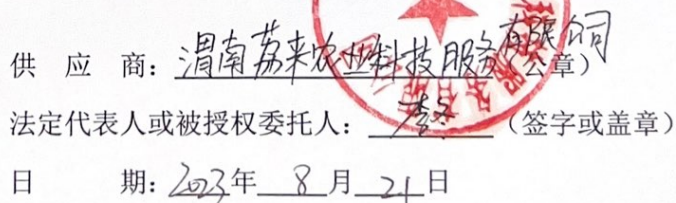 供 应 商：渭南荔来农业科技服务有限公司（公章）
法定代表人或被授权委托人：李冬（签字或盖章）
日 期：2023年 8 月 21 日